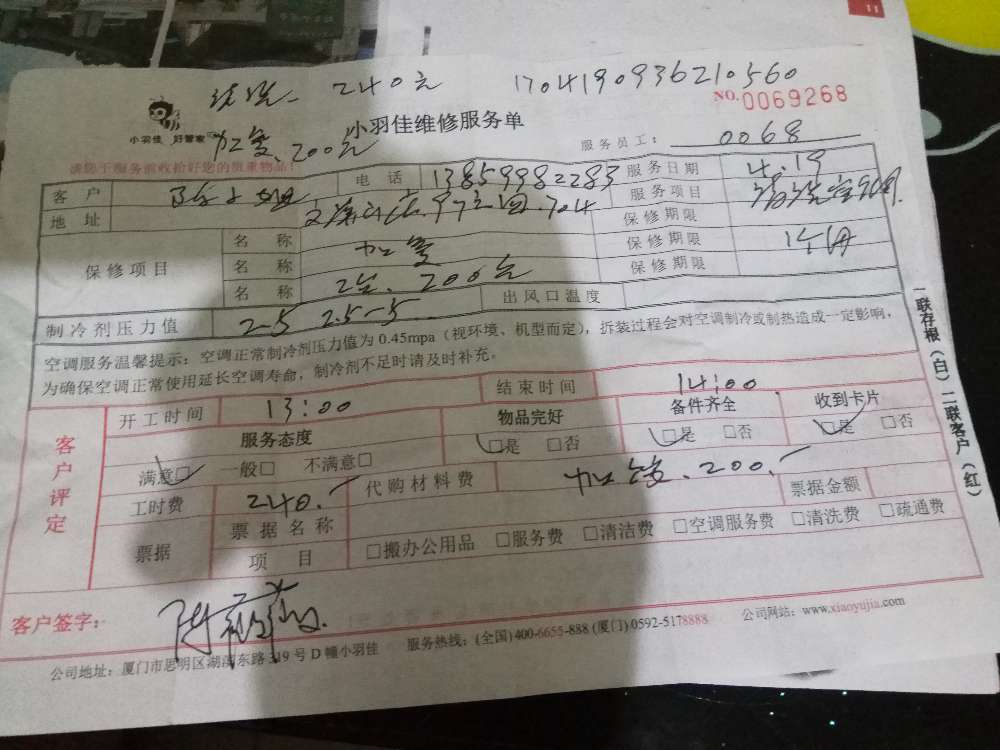 11
清洗 240元 1704190936210560
NO.0069268
小羽佳 好管家
加氟 200元
小羽佳维修服务单
服务员工： 0068
请您于服务前收拾好您的贵重物品！
客户 陈小姐 电话 13859982283 服务日期 4.19
地址 97 704 服务项目 清洗空调
保修期限
保修项目 名称 加氟 保修期限
名称 保修期限
名称 200元
制冷剂压力值 2-5 2.5-5 出风口温度
空调服务温馨提示：空调正常制冷剂压力值为 0.45mpa（视环境、机型而定），拆装过程会对空调制冷或制热造成一定影响，
为确保空调正常使用延长空调寿命，制冷剂不足时请及时补充。
一联存根（白）二联客户（红）
客户评定
开工时间 13:00 结束时间 14:00
服务态度 物品完好 备件齐全 收到卡片
满意□ 一般□ 不满意□ □是 □否 □是 □否 □是 □否
工时费 240.- 代购材料费 加氟 200.- 票据金额
票据 票据名称
项目 □搬办公用品 □服务费 □清洁费 □空调服务费 □清洗费 □疏通费
客户签字：
公司地址：厦门市思明区湖滨东路319号D幢小羽佳 服务热线：(全国)400-6655-888 (厦门)0592-5178888 公司网站：www.xiaoyujia.com